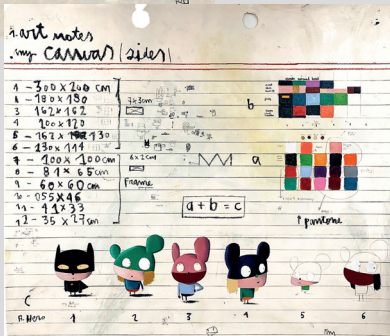 art notes
my canvas (sides)
1 - 300 x 200 cm
2 - 180 x 180
3 162 x 162
4 200 x 120
5 - 162 x 130
6 - 130 x 114
7 - 100 x 100 cm
8 - 81 x 65 cm
9 - 60 x 60 cm
10 - 055 x 46
11 - 41 x 33
12 - 35 x 27 cm
7 x 3 cm
6 x 2 cm
Frame
b
a
a + b = c
↑ pantone
C
R. Hero 1 2 3 4 5 6